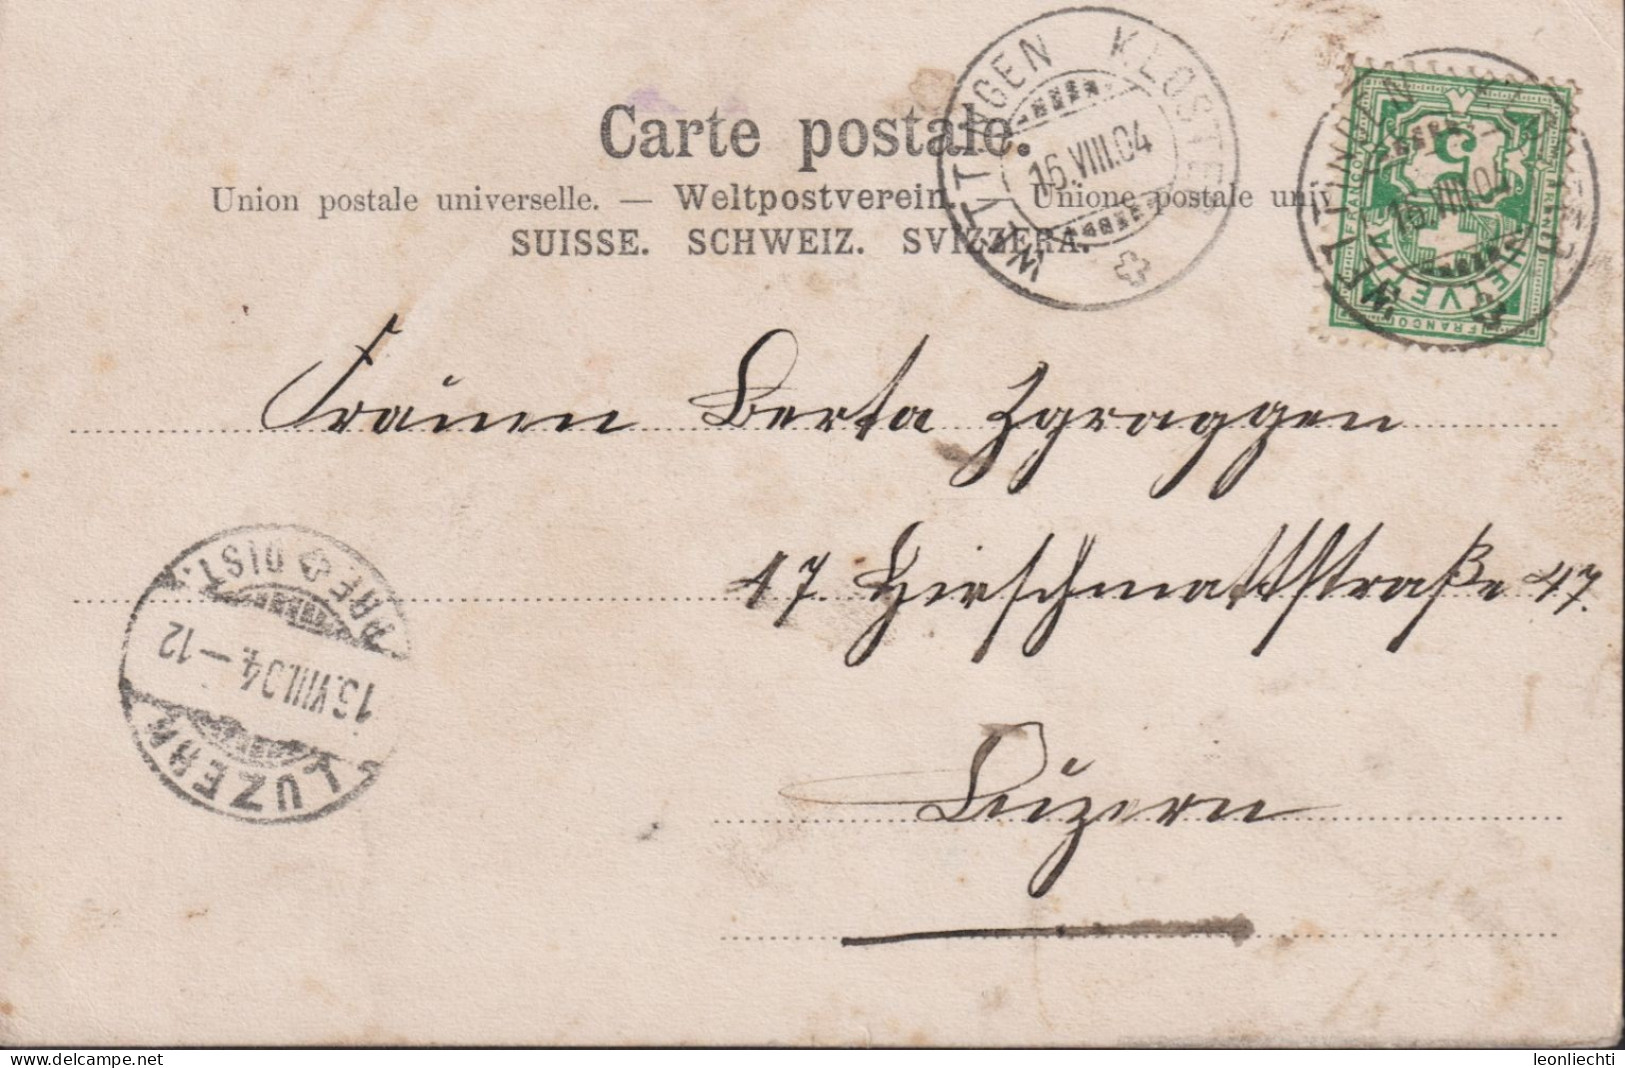 Carte postale.
Union postale universelle. — Weltpostverein. — Unione postale univ
SUISSE. SCHWEIZ. SVIZZERA.
WETTINGEN KLOSTER
16.VIII.04
WETTINGEN KLOSTER
16.VIII.04
5
FRANCO
HELVETIA
FRANCO
Fräulein Berta Zgraggen
17. Hirschmattstraße 47.
Luzern
LUZERN
BRE DIST.
15.VIII.04.-12
leonliechti